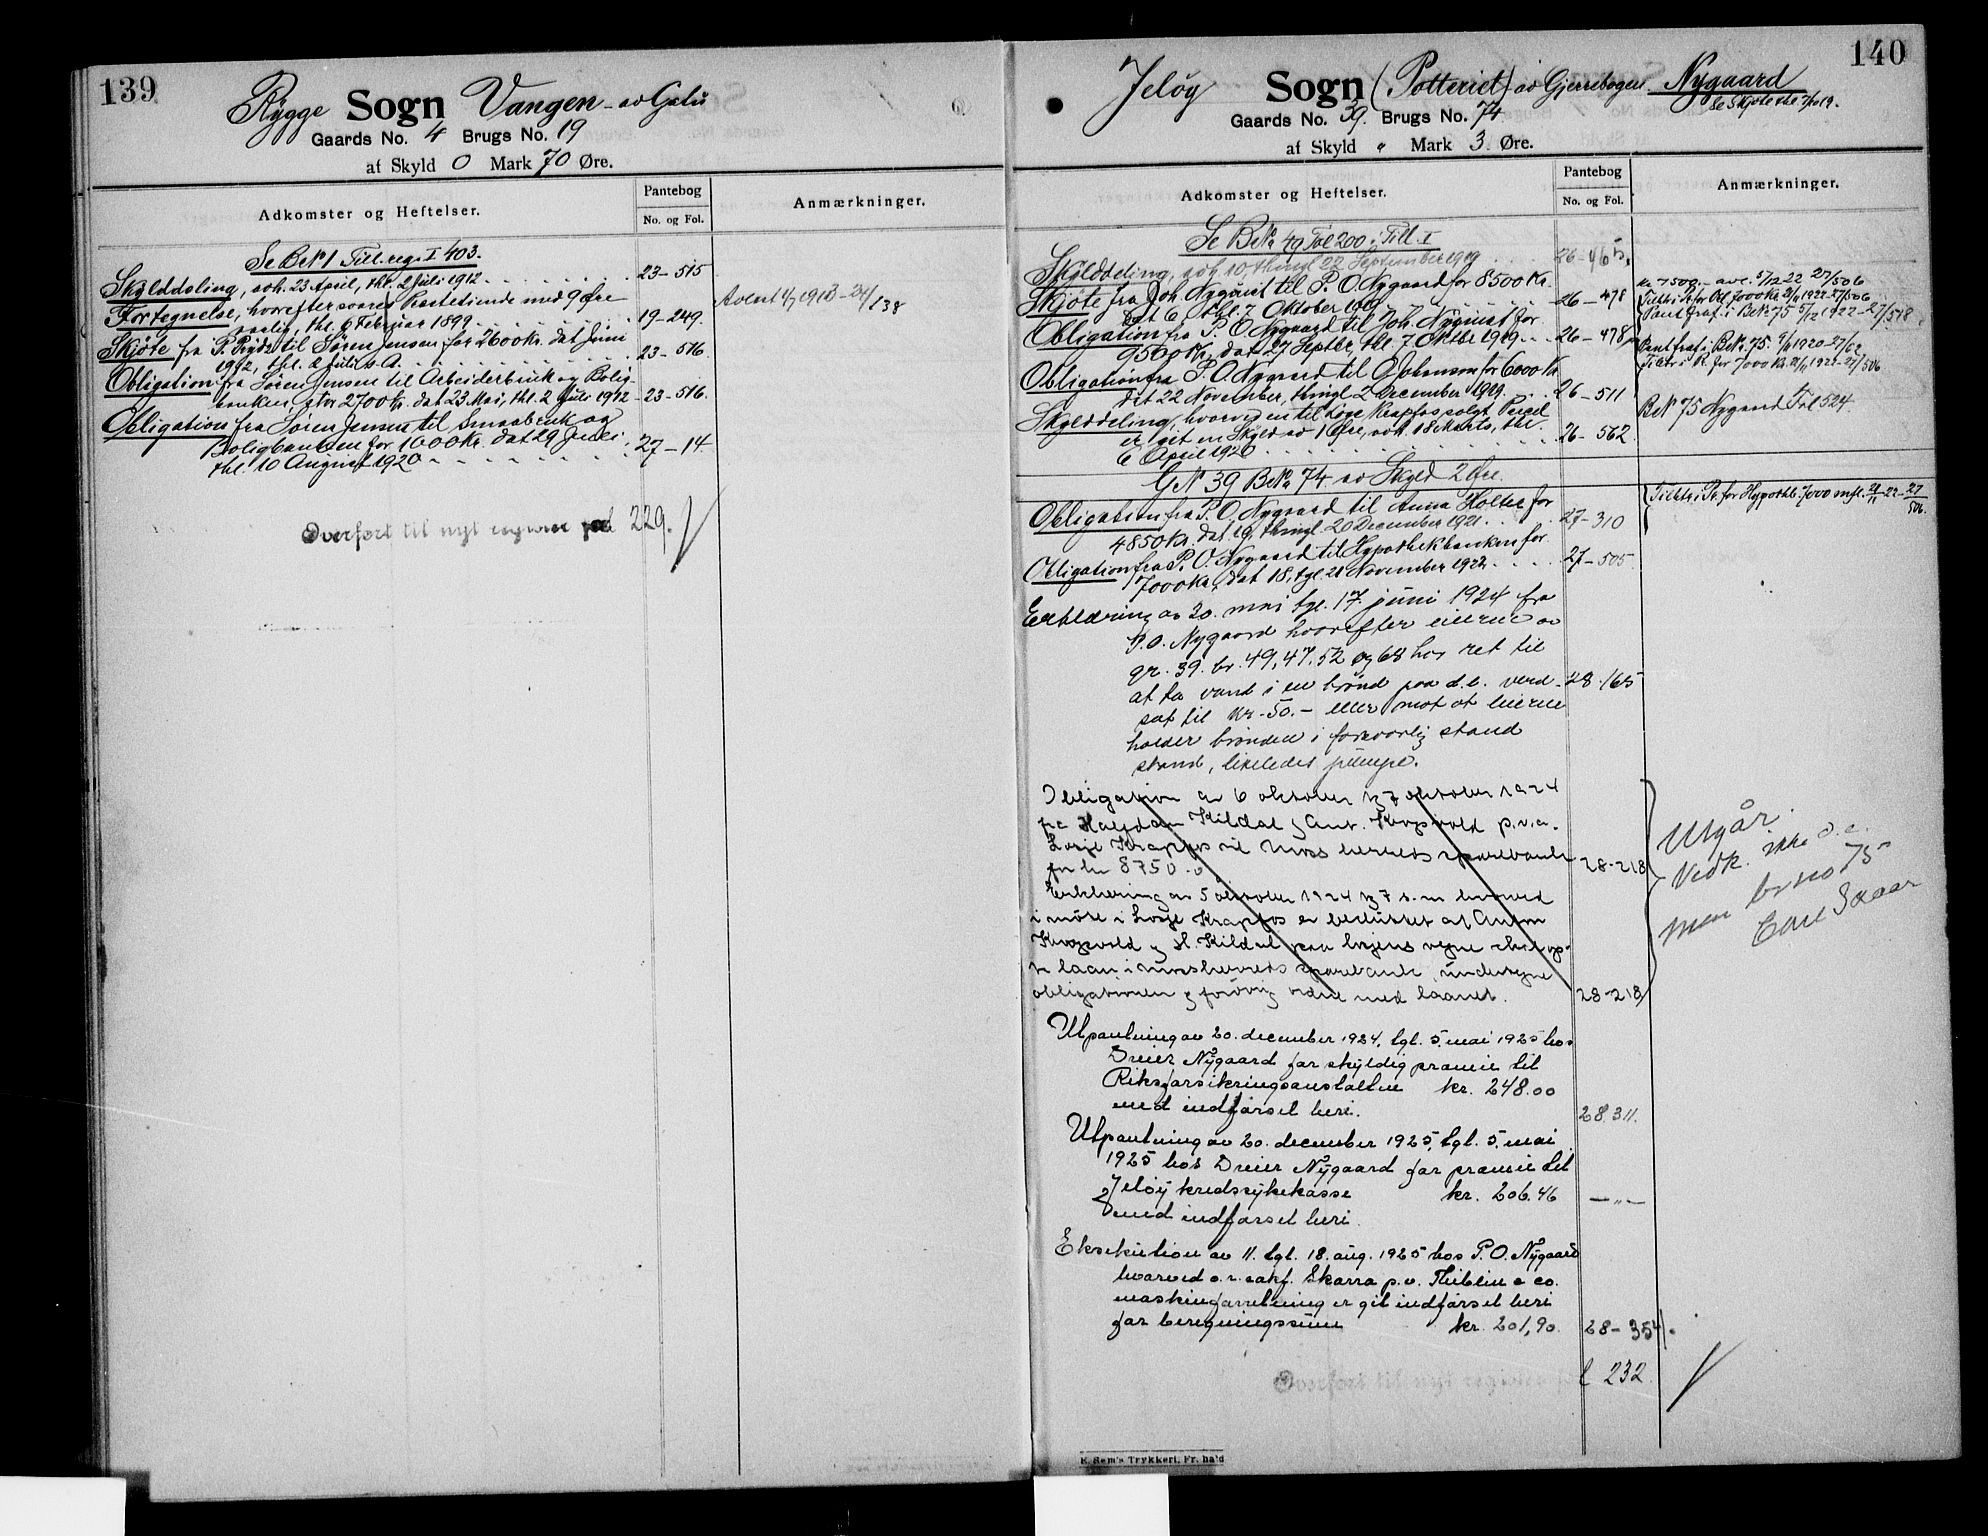 139
Rygge Sogn Vangen - av Galu
Gaards No. 4 Brugs No. 19
af Skyld 0 Mark 70 Øre.
Adkomster og Heftelser.
Pantebog
No. og Fol.
Anmærkninger.
Se BrN 1 Till. reg. I 403.
Skylddeling, avh. 23 April, thl. 2 Juli 1912 23-515
Fortegnelse, hvorefter svares Korntiende med 9 Øre
aarlig, thl. 6 Februar 1899 19-249.
Avlest 4/7 1913-24/138
Skjøte fra P. Pryds til Søren Jensen for 2600 Kr. dat Juni
1912, thl. 2 Juli s. A. 23-516
Obligation fra Søren Jensen til Arbeiderbruk og Bolig-
banken, stor 2700 Kr. dat 23 Mai, thl. 2 Juli 1912 - 23-516.
Obligation fra Søren Jensen til Smaabruk og
Boligbanken for 1600 Kr. dat 29 Juli
thl. 10 August 1920 27-14.
Overført til nyt register fol 229.
140
Jeløy Sogn (Potteriet) av Gjerrebogen. Nygaard
Se Skjøte thl 7/10 19.
Gaards No. 39. Brugs No. 74
af Skyld " Mark 3 Øre.
Adkomster og Heftelser.
Pantebog
No. og Fol.
Anmærkninger.
Se BrNo 49 Fol 200 i Till. I
Skylddeling, avh. 10, thingl 22 September 1919 26-465.
Skjøte fra Joh. Nyquist til P. O. Nygaard for 8500 Kr.
dat 6, thl. 7 Oktober 1919. 26-478
Obligation fra P. O. Nygaard til Joh. Nyquist for
9500 Kr., dat 27 Septbr, thl. 7 Oktbr 1919 26-478
Kr 7500.- avl. 5/12 22 27/506
Tiltr. i Pr. for Obl. 7000 Kr 21/11 1922 27/506
Pantfraf. i BrNo 75 5/12 1922-27/518
Obligation fra P. O. Nygaard til O. Johanson for 6000 Kr
dat 22 November, thingl 2 December 1919. 26-511
Pantfraf i BrNo 75. 9/4 1920-27/62
Tiltr i Pr. for 7000 Kr. 21/11 1922-27/506
Skylddeling, hvorved en til Loge Krapfos solgt Parcel
er git en Skyld av 1 Øre, avh. 18 Marts, thl.
6 April 1920 26-562.
BrN 75 Nygaard Fol 524.
GN 39 BrNo 74 av Skyld 2 Øre.
Obligation fra P. O. Nygaard til Anna Holter for
4850 Kr. dat 19, thingl. 20 December 1921 27-310
Tiltr. i Pr. for Hypothb. 7000 mfl. 21/11 22-27/506.
Obligation fra P. O. Nygaard til Hypothekbanken for
7000 Kr, dat 18, tgl. 21 November 1922 27-505.
Erklæring av 30. mai tgl. 17 juni 1924 fra
P. O. Nygaard hvorefter eierne av
gr. 39. br. 49, 47, 52 og 68 har ret til
at ta vand i en brønd paa d.e. verd- 28-165
sat til kr. 50.- eller mot at eierne
holder brønden i forsvarlig stand
stand, likeledes pumpe.
Obligation av 6 oktober tgl 7 oktober 1924
fra Halfdan Kildal og Ant. Krogsvold p.v.a.
Losje Krapfos til Moss herreds sparebank
for kr 8750.0 28-218
Erklæring av 5 oktober 1924 tgl 7 s.m hvorved
i møte i Losje Krapfos er besluttet at Anton
Krogsvold og H. Kildal paa losjens vegne skal op-
ta laan i Moss herreds sparebank, undertegne
obligationen og forøvrig ordne med laanet. 28-218
Utgår.
Vedk. ikke d.e.
men br no 75
Carl Skaar
Utpantning av 20. december 1924. tgl. 5. mai 1925 hos
Dreier Nygaard for skyldig præmie til
Riksforsikringsanstalten kr. 248.00
med indførsel heri. 28.311.
Utpantning av 20. december 1925, tgl. 5. mai
1925 hos Dreier Nygaard for præmie til
Jeløy kredssykekasse kr. 206.46 -"-
med indførsel heri.
Eksekution av 11. tgl. 18. aug. 1925 hos P. O. Nygaard
hvorved o.r.sakf. Skarra p.v. Thiblin & co.
maskinforretning er git indførsel heri
for beregningssum kr. 201,90. 28-354.
Overført til nyt register fol 232
E. Sem's Trykkeri, Fr. ha'd